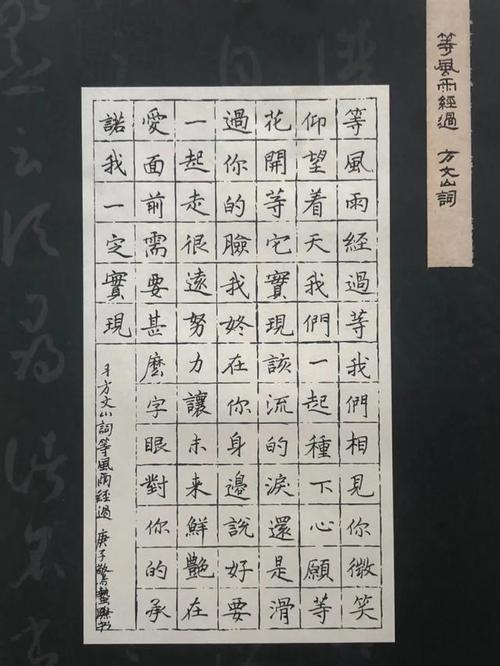 等風雨經過 方文山詞
等風雨經過等我們相見你微笑
仰望着天我們一起種下心願等
花開等它實現該流的淚還是滑
過你的臉我終在你身邊說好要
一起走很遠努力讓未来鮮艷在
愛面前需要甚麼字眼對你的承
諾我一定實現
方文山詞等風雨經過 庚子驚蟄